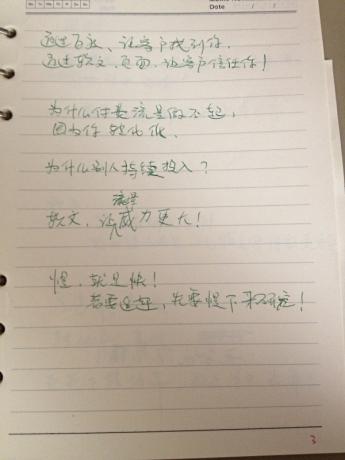 Date / /
通过百度、让客户找到你.
通过软文、页面,让客户信任你!
为什么付费流量做不起,
因为你转化低、
为什么别人持续投入?
软文,让流量威力更大!
慢,就是快!
若要,先要慢下来研究!
3